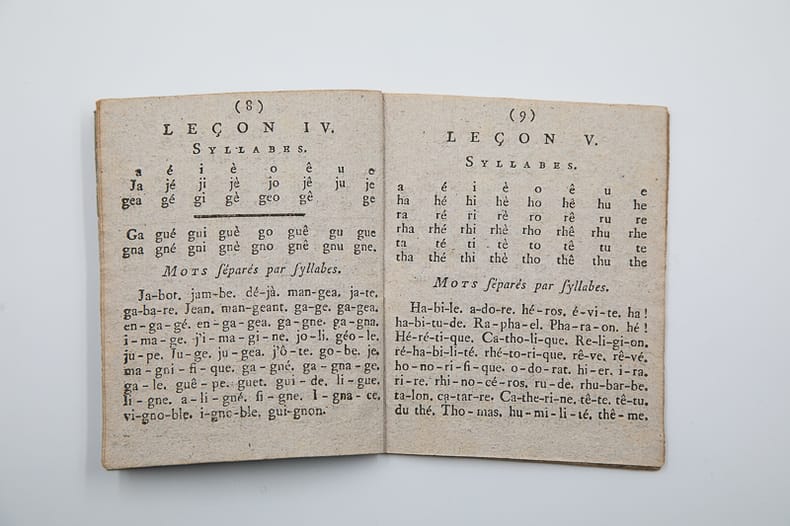 (8)
LEÇON IV.
SYLLABES.
a é i è o ê u e
Ja jé ji jè jo jê ju je
gea gé gi gè geo gê ge
Ga gué gui guè go guê gu gue
gna gné gni gnè gno gnê gnu gne.
MOTS ſéparés par ſyllabes.
Ja-bot. jam-be. dé-jà. man-gea. ja-te.
ga-ba-re. Jean. man-geant. ga-ge. ga-gea.
en-ga-gé. en-ga-gea. ga-gne. ga-gna.
i-ma-ge. j'i-ma-gi-ne. jo-li. géo-le.
ju-pe. Ju-ge. ju-gea. j'ô-te. go-be. je.
ma-gni-fi-que. ga-gné. ga-gna-ge.
ga-le. guê-pe. guet. gui-de. li-gue.
li-gne. a-li-gné. ſi-gne. I-gna-ce.
vi-gno-ble. i-gno-ble. gui-gnon.
(9)
LEÇON V.
SYLLABES.
a é i è o ê u e
ha hé hi hè ho hê hu he
ra ré ri rè ro rê ru re
rha rhé rhi rhè rho rhê rhu rhe
ta té ti tè to tê tu te
tha thé thi thè tho thê thu the
MOTS ſéparés par ſyllabes.
Ha-bi-le. a-do-re. hé-ros. é-vi-te. ha !
ha-bi-tu-de. Ra-pha-el. Pha-ra-on. hé !
Hé-ré-ti-que. Ca-tho-li-que. Re-li-gi-on.
ré-ha-bi-li-té. rhé-to-ri-que. rê-ve. rê-vé.
ho-no-ri-fi-que. o-do-rat. hi-er. i-ra.
ri-re. rhi-no-cé-ros. ru-de. rhu-bar-be.
ta-lon. ca-tar-re. Ca-the-ri-ne. tê-te. tê-tu.
du thé. Tho-mas. hu-mi-li-té. thê-me.